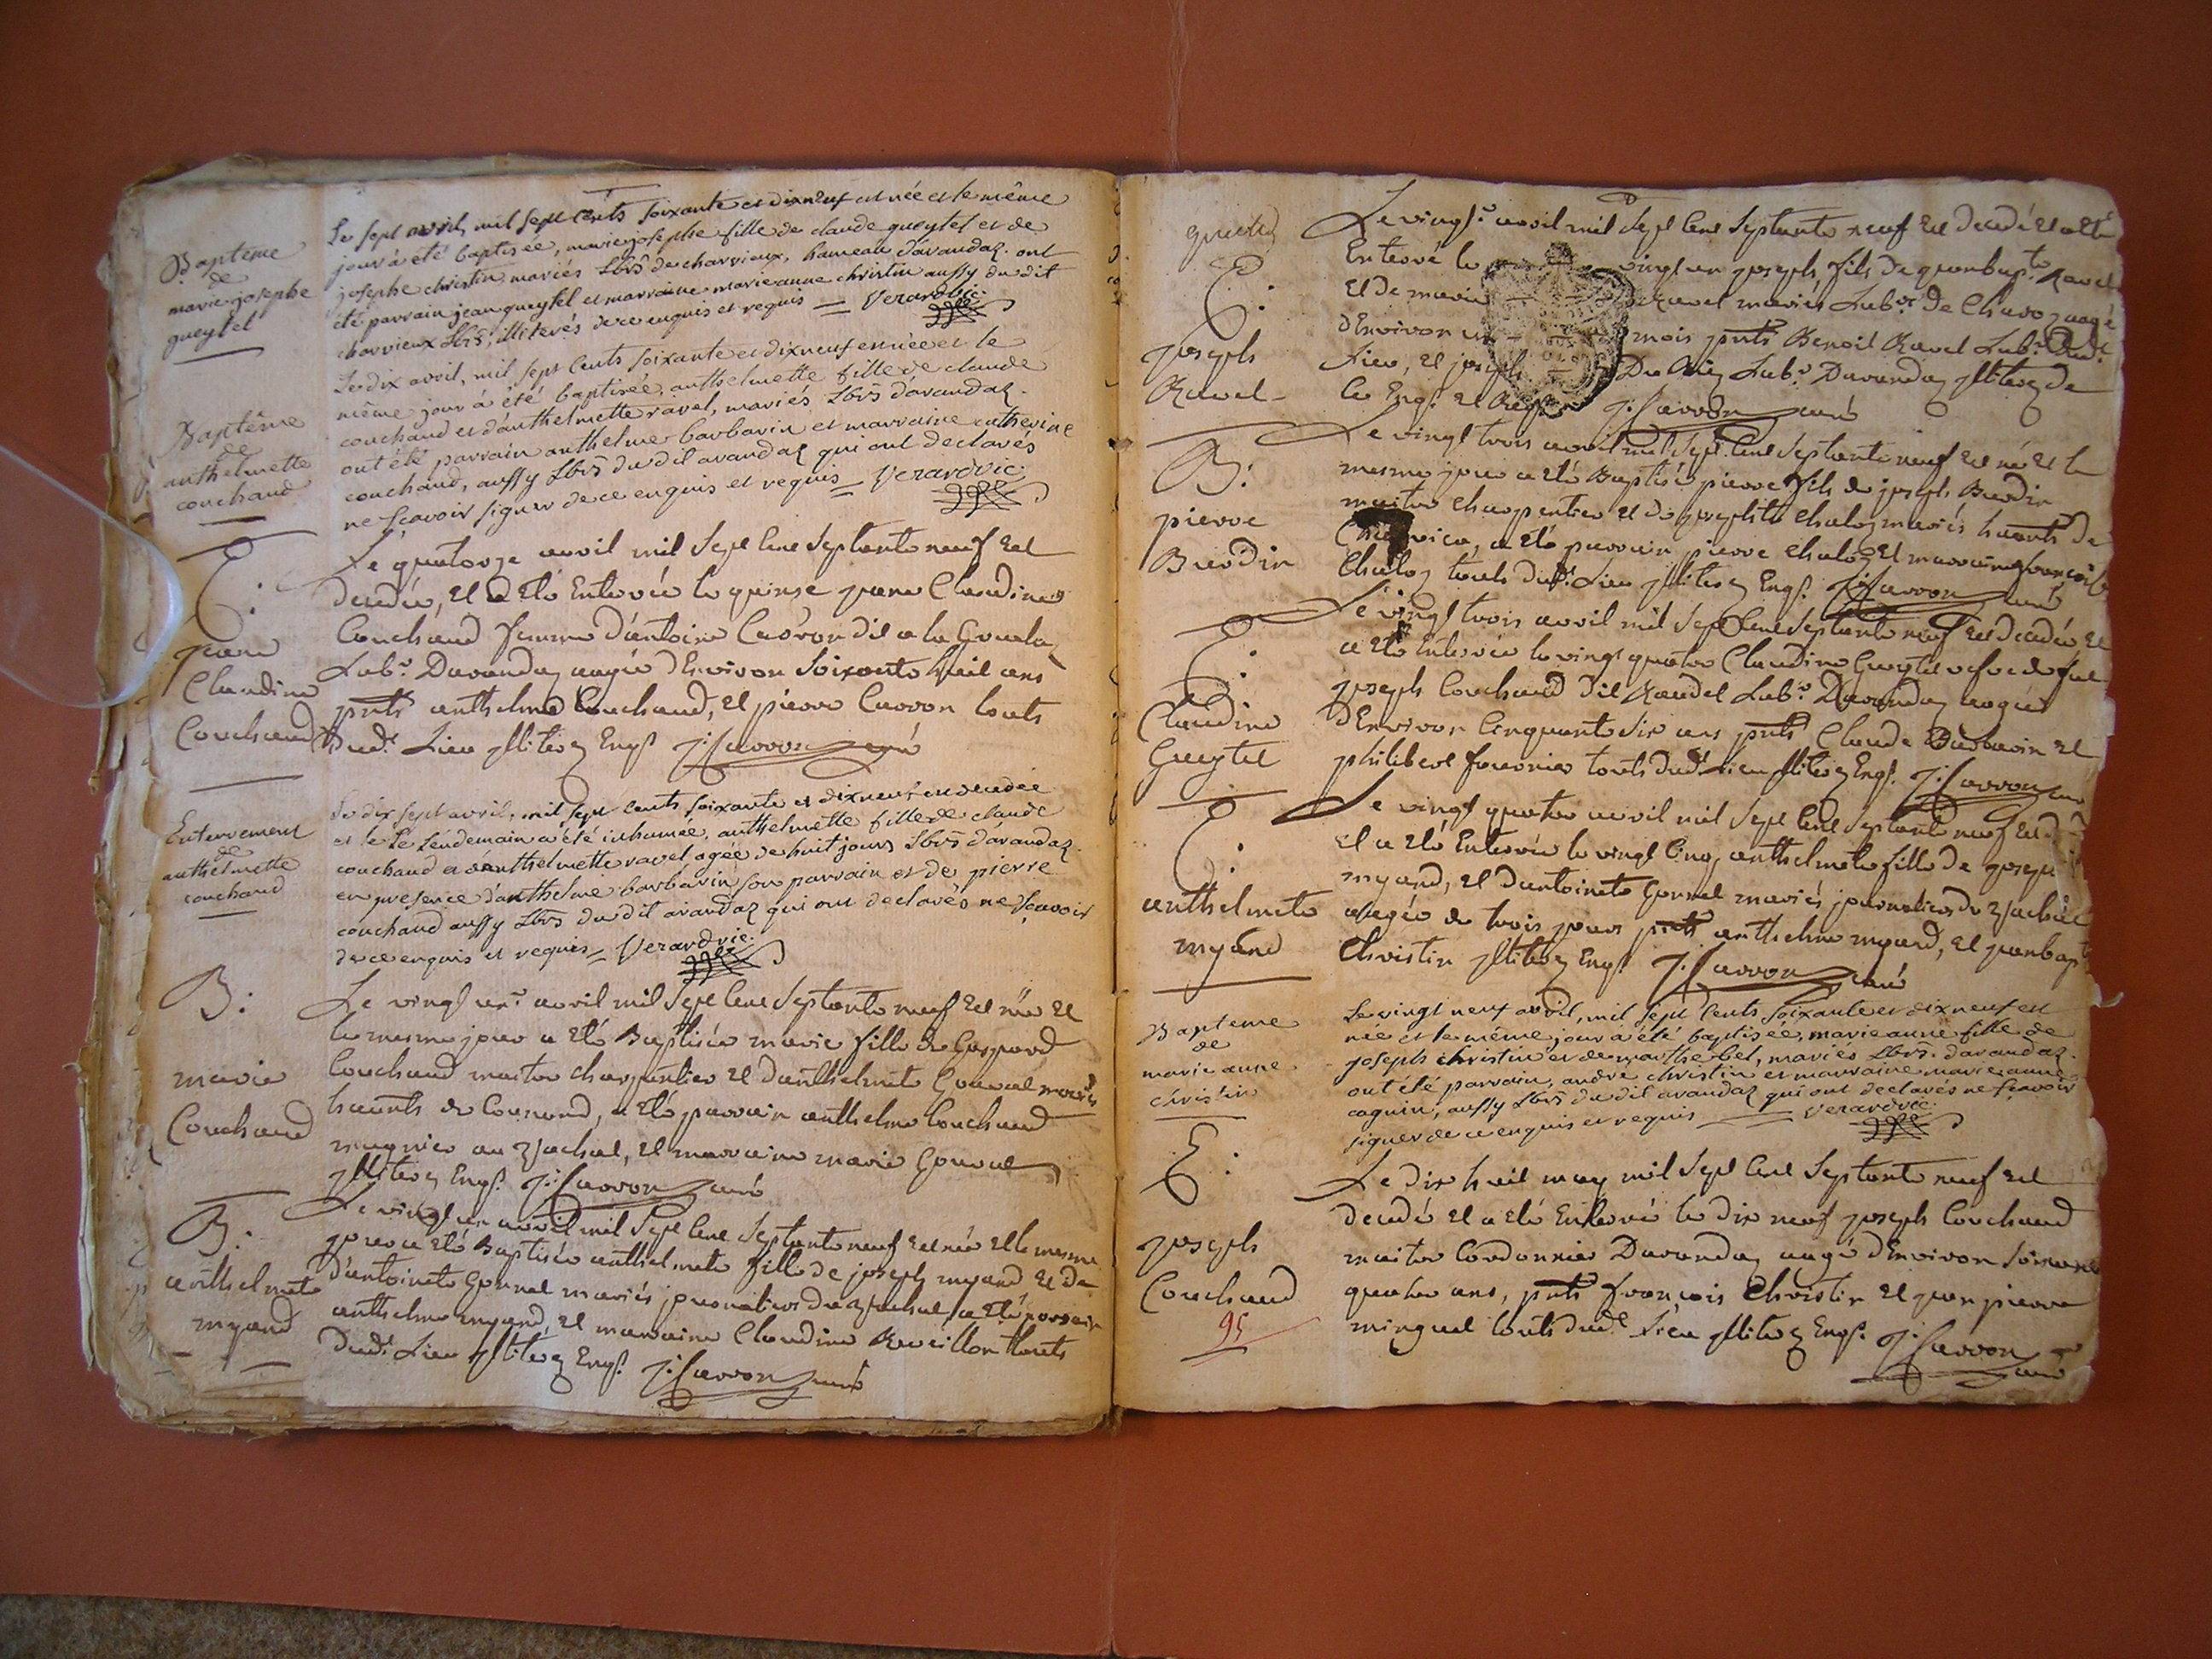 Baptême
de
marie josephe
gueytet
Le sept avril, mil sept cents soixante et dixneuf est née et le même
jour à été baptisée, marie josephe fille de claude gueytet et de
josephe christin mariés Lbrs de charvieux, hameau d'arandaz. ont
été parrain jean gueytet et marraine marie anne christin aussy du dit
charvieux Lbrs, illiterés de ce enquis et requis = Verard vic:
Baptême
de
anthelmette
couchaud
Le dix avril, mil sept cents soixante et dixneuf est née et le
même jour à été baptisée, anthelmette fille de claude
couchaud et d'anthelmette ravel, mariés Lbrs d'arandaz.
ont été parrain anthelme barbarin et marraine catherine
couchaud, aussy Lbrs du dit arandaz qui ont declarés
ne sçavoir signer de ce enquis et requis = Verard vic:
E:
jeane
Claudine
Couchaud
Le quatorze avril mil Sept Cent Septante neuf est
decedée, et a eté Enterrée le quinse jeane Claudine
Couchaud femme d'antoine Carron dit a la
Labr. Darandaz aagée d'Environ Soixante huit ans
pnts anthelme Couchaud, et pierre Carron touts
dudt Lieu jlliterez Enqs. J: Carron curé
Enterrement
de
anthelmette
couchaud
Le dix sept avril, mil sept cents soixante et dixneuf est decedée
et le Le Lendemain a été inhumée, anthelmette fille de claude
couchaud et d'anthelmette ravel, agée de huit jours Lbrs d'arandaz.
en presence d'anthelme barbarin son parrain et de pierre
couchaud aussy Lbrs du dit arandaz qui ont declarés ne sçavoir
de ce enquis et requis = Verard vic:
B:
marie
Couchaud
Le vingt un avril mil Sept Cent Septante neuf est née et
le mesme jour a eté Baptisée marie fille de Gaspard
Couchaud maitre charpentier et d'anthelmete Gouval mariés
haants de Conand, a eté parrain anthelme Couchaud
magnier au zjachet, et marraine marie Gouval
jlliterez Enqs. J: Carron curé
B:
anthelmete
myand
Le vingt un avril mil Sept Cent Septante neuf est née et le mesme
jour a eté Baptisée anthelmete fille de joseph myand et de
d'antoinete Gonnet mariés journaliers du zjachet, a eté parrain
anthelme myand, et marraine Claudine Reveillon touts
dudt Lieu jlliterez Enqs. J: Carron curé
E:
joseph
Ravel
Le vingt avril mil Sept Cent Septante neuf est decedé et a eté
Enterré le vingt un joseph fils de jeanbapte Ravel
et de marie Ravel mariés Labrs de
d'Environ mois pnts Benoit Ravel Labr. dudt
Lieu, et joseph Labr. Darandaz jlliterez de
ce Enqs. et Reqs J: Carron curé
B:
pierre
Burdin
Le vingt trois avril mil Sept Cent Septante neuf est né et le
mesme jour a eté Baptisé pierre fils de joseph Burdin
maitre charpentier et de josephte chaloz mariés haants de
a eté parrain pierre chaloz et marraine françoise
Chaloz touts dudt Lieu jlliterez Enqs. J: Carron curé
E:
Claudine
Gueytet
Le vingt trois avril mil Sept Cent Septante neuf est decedée et
a eté Enterrée le vingt quatre Claudine Gueytet vefve de feu
joseph Couchaud dit Labr. Darandaz aagée
d'Environ Cinquante Six ans pnts Claude Barbarin et
philibert fournier touts dudt Lieu jlliterez Enqs. J: Carron curé
E:
anthelmete
myand
Le vingt quatre avril mil Sept Cent Septante neuf est
et a eté Enterrée le vingt Cinq anthelmete fille de joseph
myand, et d'antoinete Gonnet mariés journaliers du zjachet
aagée de trois jours pnts anthelme myand, et jeanbapte
Christin jlliterez Enqs. J: Carron curé
Bapteme
de
marie anne
christin
Le vingt neuf avril, mil sept cents soixante et dixneuf est
née et le même jour à été baptisée, marie anne fille de
joseph christin et de marthe bel, mariés Lbrs. d'arandaz.
ont été parrain, andré christin et marraine marie anne
caquin, aussy Lbrs du dit arandaz qui ont declarés ne sçavoir
signer de ce enquis et requis = Verard vic:
E:
joseph
Couchaud
95
Le dix huit may mil Sept Cent Septante neuf est
decedé et a eté Enterré le dix neuf joseph Couchaud
maitre Cordonnier Darandaz aagé d'Environ Soixante
quatre ans, pnts françois Christin et jean pierre
minguet touts dudt Lieu jlliterez Enqs. J: Carron
curé